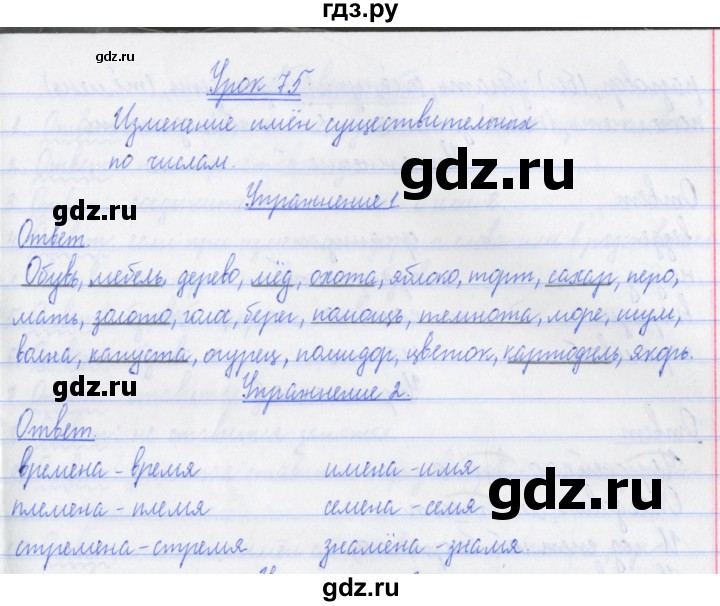 гдз.ру
Урок 75
Изменение имён существительных
по числам.
gdz.ru
gdz.ru
Упражнение 1
Ответ.
Обувь, мебель, дерево, мёд, охота, яблоко, торт, сахар, перо,
мать, золото, голос, берег, помощь, темнота, море, шум,
волна, капуста, огурец, помидор, цветок, картофель, якорь.
gdz.ru
Упражнение 2.
Ответ.
времена - время имена - имя
племена - племя семена - семя
gdz.ru
стремена - стремя знамёна - знамя.
gdz.ru
gdz.ru